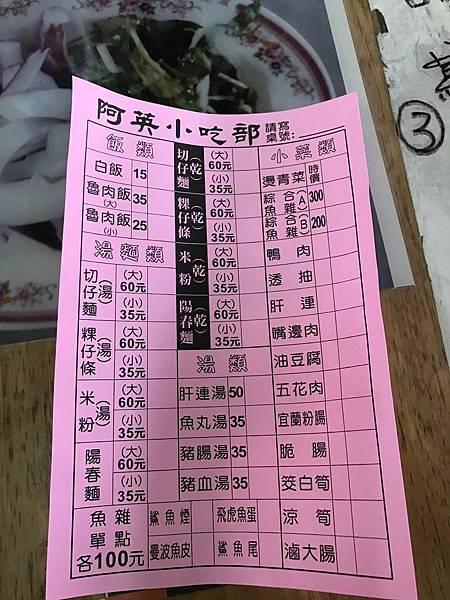 阿英小吃部 請寫桌號:
飯類
白飯 15
魯肉飯(大) 35
魯肉飯(小) 25
湯麵類
切仔麵(湯) (大)60元 (小)35元
粿仔條(湯) (大)60元 (小)35元
米粉(湯) (大)60元 (小)35元
陽春麵 (大)60元 (小)35元
魚雜單點各100元
鯊魚煙
飛虎魚蛋
曼波魚皮
鯊魚尾
切仔麵(乾) (大)60元 (小)35元
粿仔條(乾) (大)60元 (小)35元
米粉(乾) (大)60元 (小)35元
陽春麵(乾) (大)60元 (小)35元
湯類
肝連湯 50
魚丸湯 35
豬腸湯 35
豬血湯 35
小菜類
燙青菜 時價
綜合魚雜(A) 300
綜合魚雜(B) 200
鴨肉
透抽
肝連
嘴邊肉
油豆腐
五花肉
宜蘭粉腸
脆腸
筊白筍
涼筍
滷大腸
③